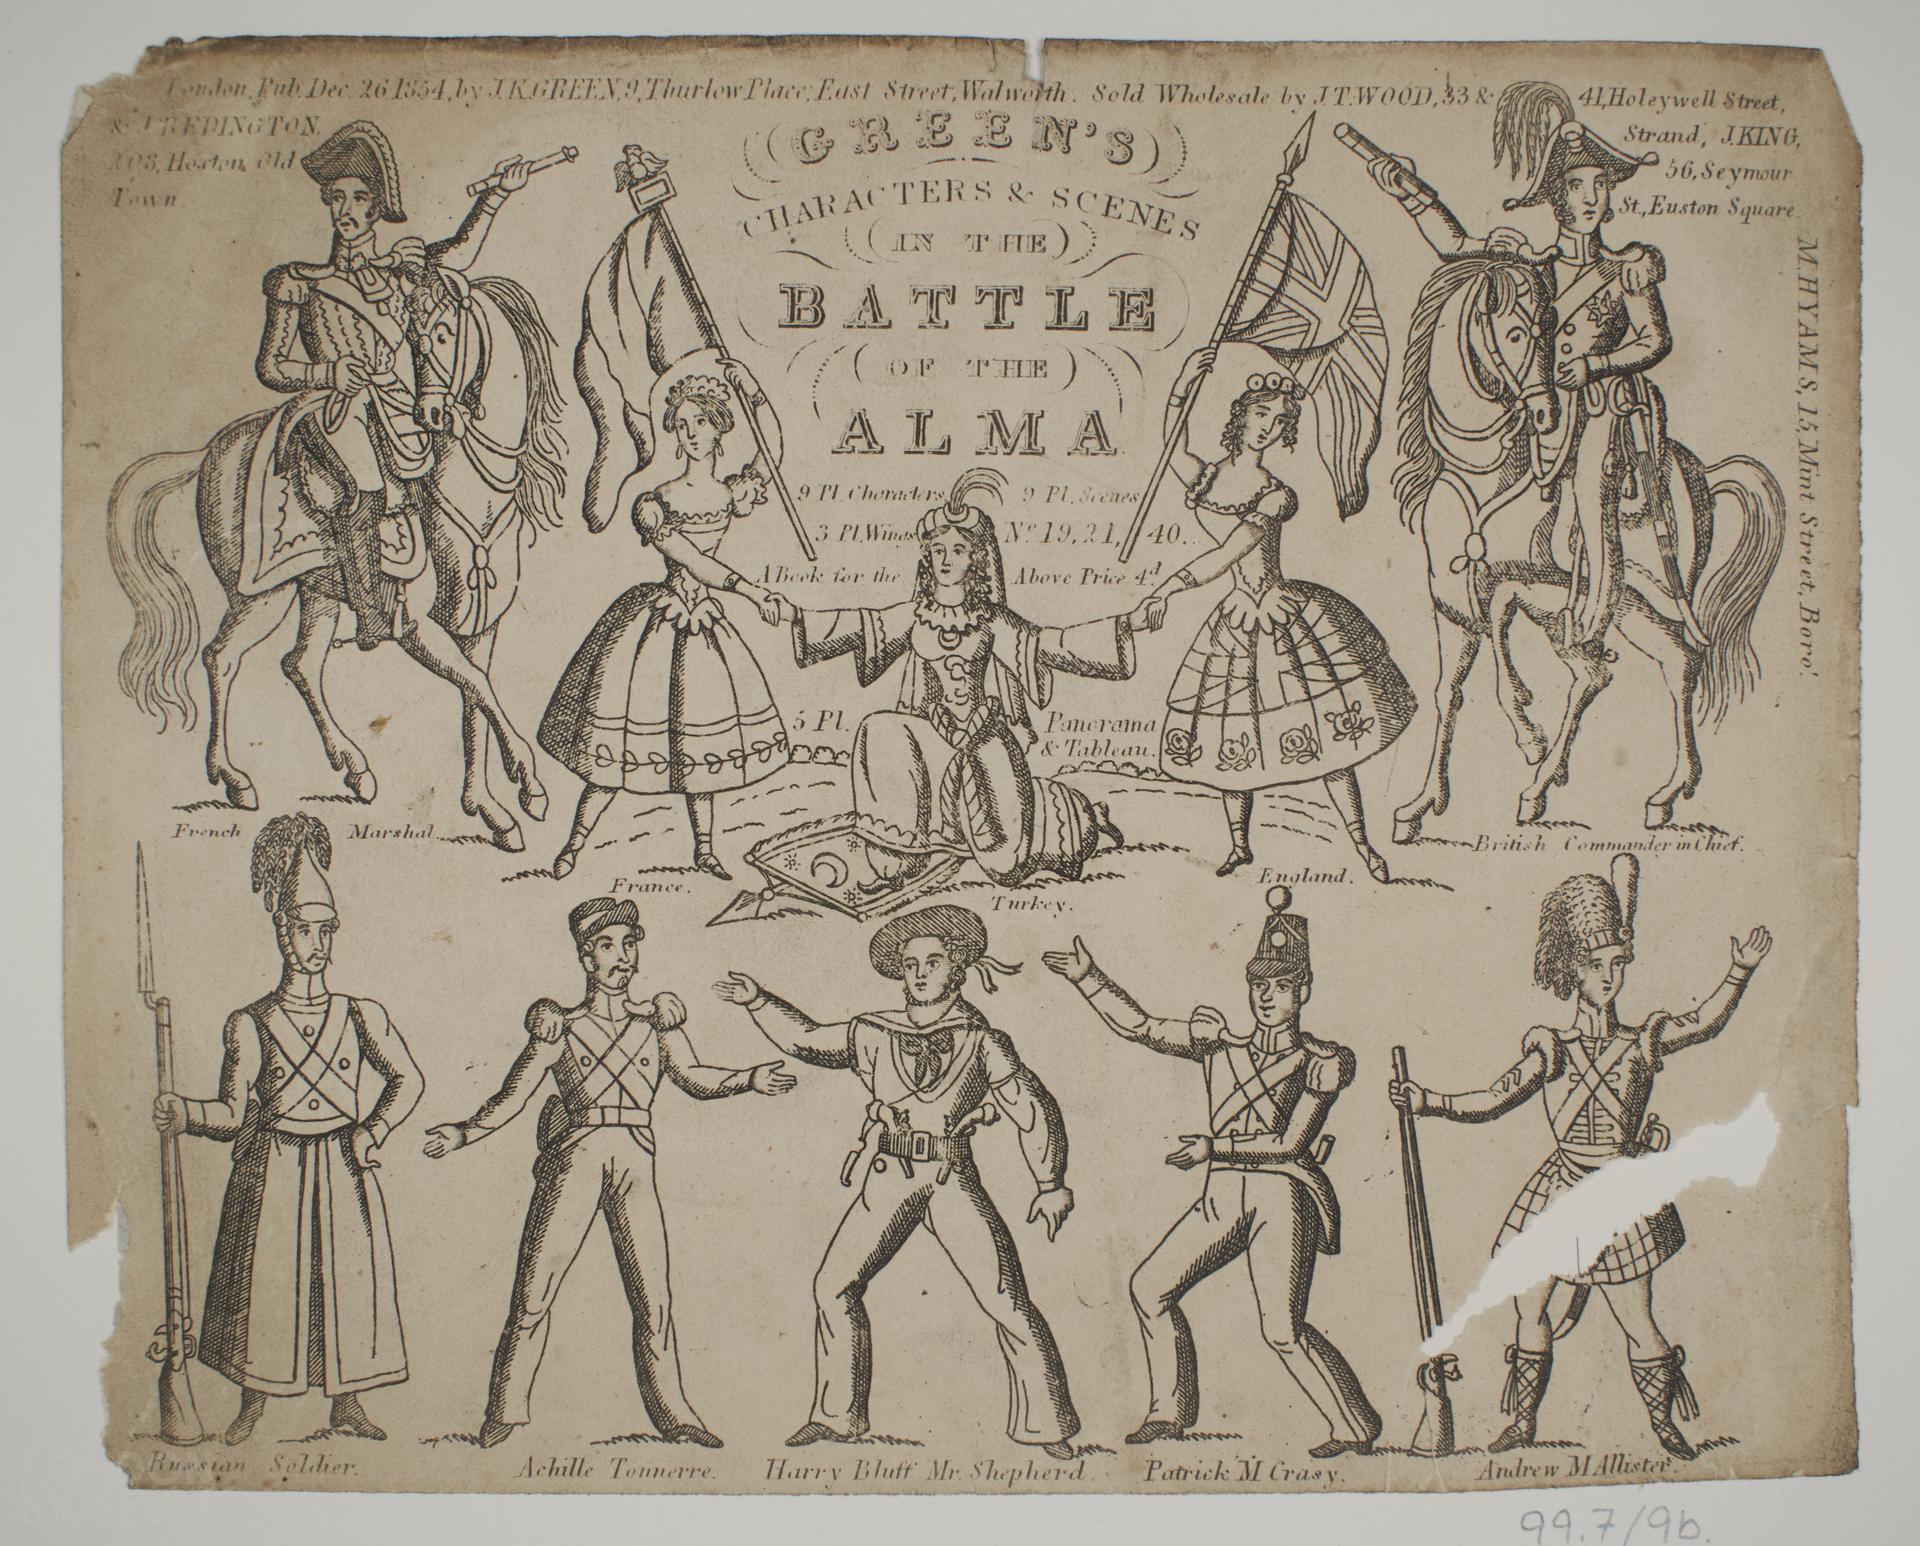 London, Pub. Dec. 26 1854, by J.K.GREEN, 9, Thurlow Place, East Street, Walworth. Sold Wholesale by J.T.WOOD, 33 & 41, Holeywell Street,
& J. REDINGTON,
208, Hoxton Old
Town.
Strand, J.KING,
56, Seymour
St., Euston Square.
M.HYAMS, 15, Mint Street, Boro'.
GREEN'S
CHARACTERS & SCENES
IN THE
BATTLE
OF THE
ALMA
9 Pl. Characters 9 Pl. Scenes
3 Pl. Wings No 19, 21, 40.
A Book for the Above Price 4d
5 Pl. Panorama
& Tableau.
French Marshal.
France.
Turkey.
England.
British Commander in Chief.
Russian Soldier.
Achille Tonnerre.
Harry Bluff Mr. Shepherd.
Patrick M'Crasy.
Andrew M'Allister.
99.7/9b.
MUSEUM